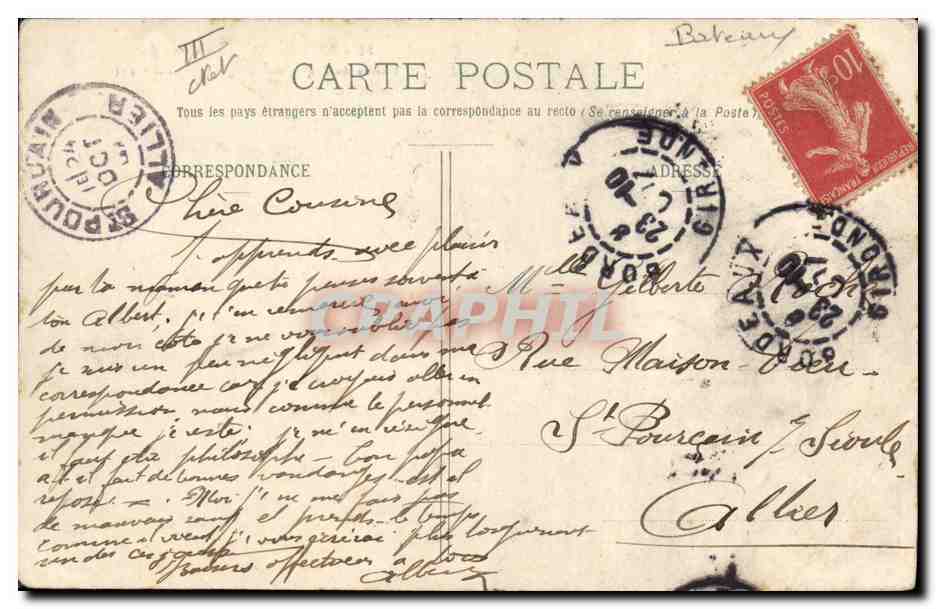 III
Bateaux
CARTE POSTALE
Tous les pays étrangers n'acceptent pas la correspondance au recto (Se renseigner à la Poste)
CORRESPONDANCE
ADRESSE
10c
POSTES
REPUBLIQUE FRANÇAISE
ST POURÇAIN ALLIER
OCT
BORDEAUX GIRONDE
23-8
10
BORDEAUX GIRONDE
23-8
10
CPAPHIL
Chère Cousine
J'apprends avec plaisir
par ta maman que tu penses souvent à
ton Albert, je t'en remercie
de mon côté je ne vous oublie pas
je suis un peu négligent dans ma
correspondance car je croyais aller en
permission, mais comme le personnel
manque je reste. je m'en
il faut être philosophe - ton papa
a-t-il fait de bonnes vendanges - est-il
reposé - Moi je ne me fais pas
de mauvais sang et prends le temps
comme il vient, je vous écrirai plus longuement
un de ces jours
Baisers affectueux à tous
Albert
Mlle Gilberte
Rue Maison-Dieu
St Pourçain s/ Sioule
Allier